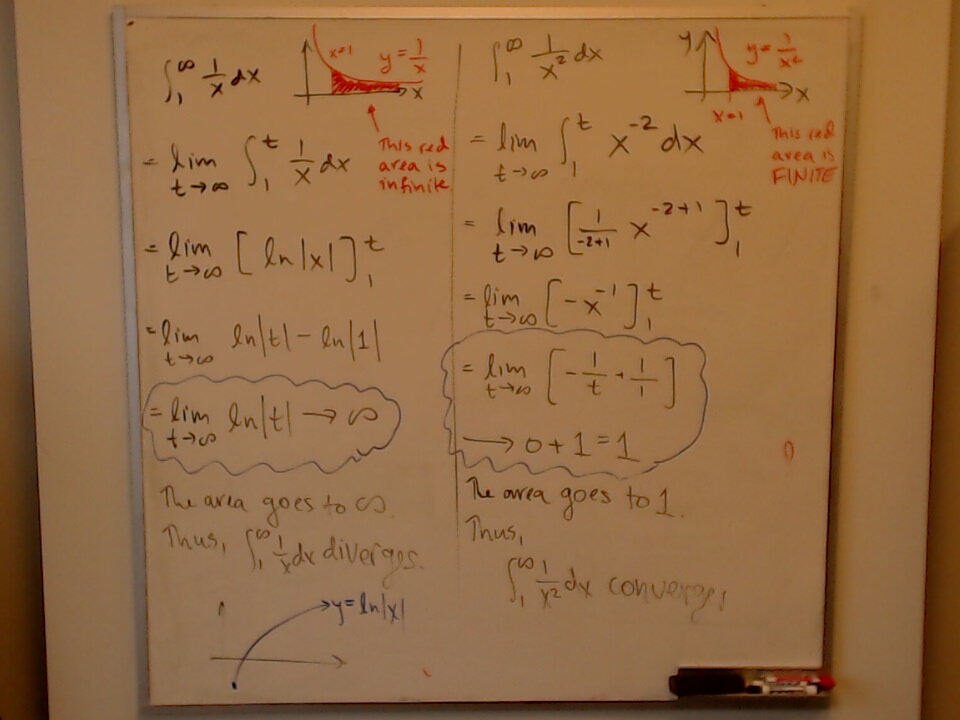 ∫₁^∞ 1/x dx
x=1
y = 1/x
x
This red
area is
infinite.
= lim t→∞ ∫₁^t 1/x dx
= lim t→∞ [ ln|x| ]₁^t
= lim t→∞ ln|t| - ln|1|
= lim t→∞ ln|t| → ∞
The area goes to ∞.
Thus, ∫₁^∞ 1/x dx diverges.
y = ln|x|
∫₁^∞ 1/x² dx
y
y = 1/x²
x
x=1
This red
area is
FINITE
= lim t→∞ ∫₁^t x^-2 dx
= lim t→∞ [ 1/(-2+1) x^(-2+1) ]₁^t
= lim t→∞ [ -x^-1 ]₁^t
= lim t→∞ [ -1/t + 1/1 ]
→ 0 + 1 = 1
The area goes to 1.
Thus,
∫₁^∞ 1/x² dx converges